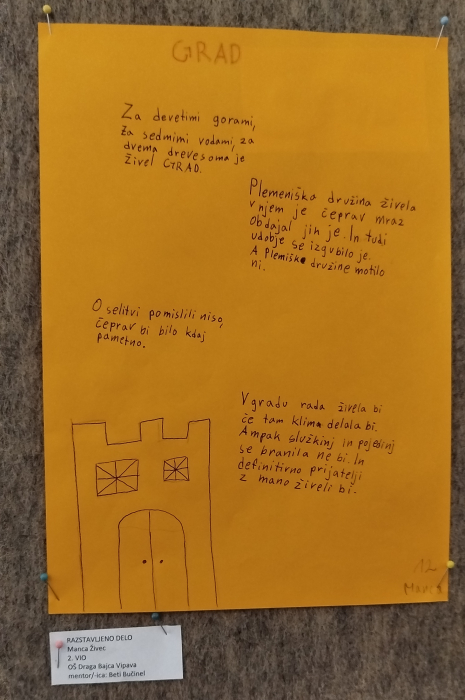 GRAD
Za devetimi gorami,
za sedmimi vodami, za
dvema drevesoma je
živel GRAD.
Plemeniška družina živela
v njem je čeprav mraz
obdajal jih je. In tudi
udobje se izgubilo je.
A plemiške družine motilo
ni.
O selitvi pomislili niso,
čeprav bi bilo kdaj
pametno.
V gradu rada živela bi
če tam klima delala bi.
Ampak služkinj in pojedinj
se branila ne bi In
definitivno prijatelji
z mano živeli bi.
12
RAZSTAVLJENO DELO
Manca Živec
2. VIO
OŠ Draga Bajca Vipava
mentor/-ica: Beti Bučinel